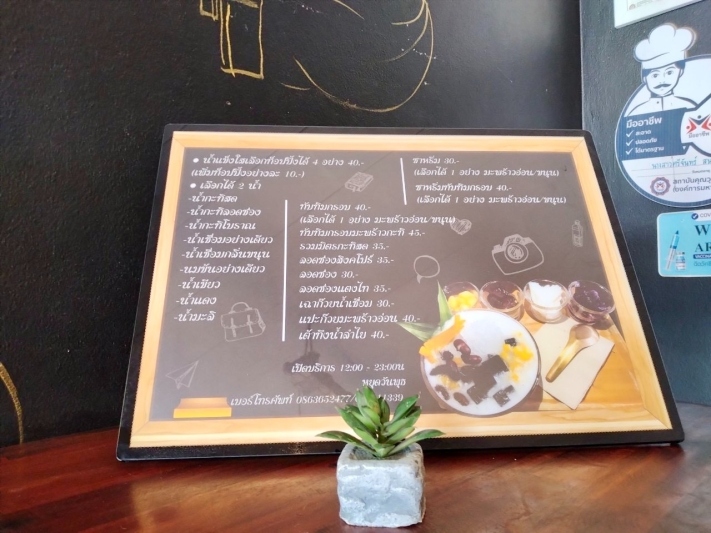 ● น้ำแข็งไสเลือกท็อปปิ้งได้ 4 อย่าง 40.-
(เพิ่มท็อปปิ้งอย่างละ 10.-)
● เลือกได้ 2 น้ำ
-น้ำกะทิสด
-น้ำกะทิลอดช่อง
-น้ำกะทิโบราณ
-น้ำเชื่อมอย่างเดียว
-น้ำเชื่อมกลิ่นขนุน
-นมข้นอย่างเดียว
-น้ำเขียว
-น้ำแดง
-น้ำมะลิ
ทับทิมกรอบ 40.-
(เลือกได้ 1 อย่าง มะพร้าวอ่อน/ขนุน)
ทับทิมกรอบมะพร้าวกะทิ 45.-
รวมมิตรกะทิสด 35.-
ลอดช่องสิงคโปร์ 35.-
ลอดช่อง 30.-
ลอดช่องแตงไท 35.-
เฉาก๊วยน้ำเชื่อม 30.-
แปะก๊วยมะพร้าวอ่อน 40.-
เต้าทึงน้ำลำไย 40.-
ซาหริ่ม 30.-
(เลือกได้ 1 อย่าง มะพร้าวอ่อน/ขนุน)
ซาหริ่มทับทิมกรอบ 40.-
(เลือกได้ 1 อย่าง มะพร้าวอ่อน/ขนุน)
เปิดบริการ 12:00 - 23:00น
หยุดวันพุธ
เบอร์โทรศัพท์ 0863652477/
มืออาชีพ
สะอาด
ปลอดภัย
ได้มาตรฐาน
มืออาชีพ